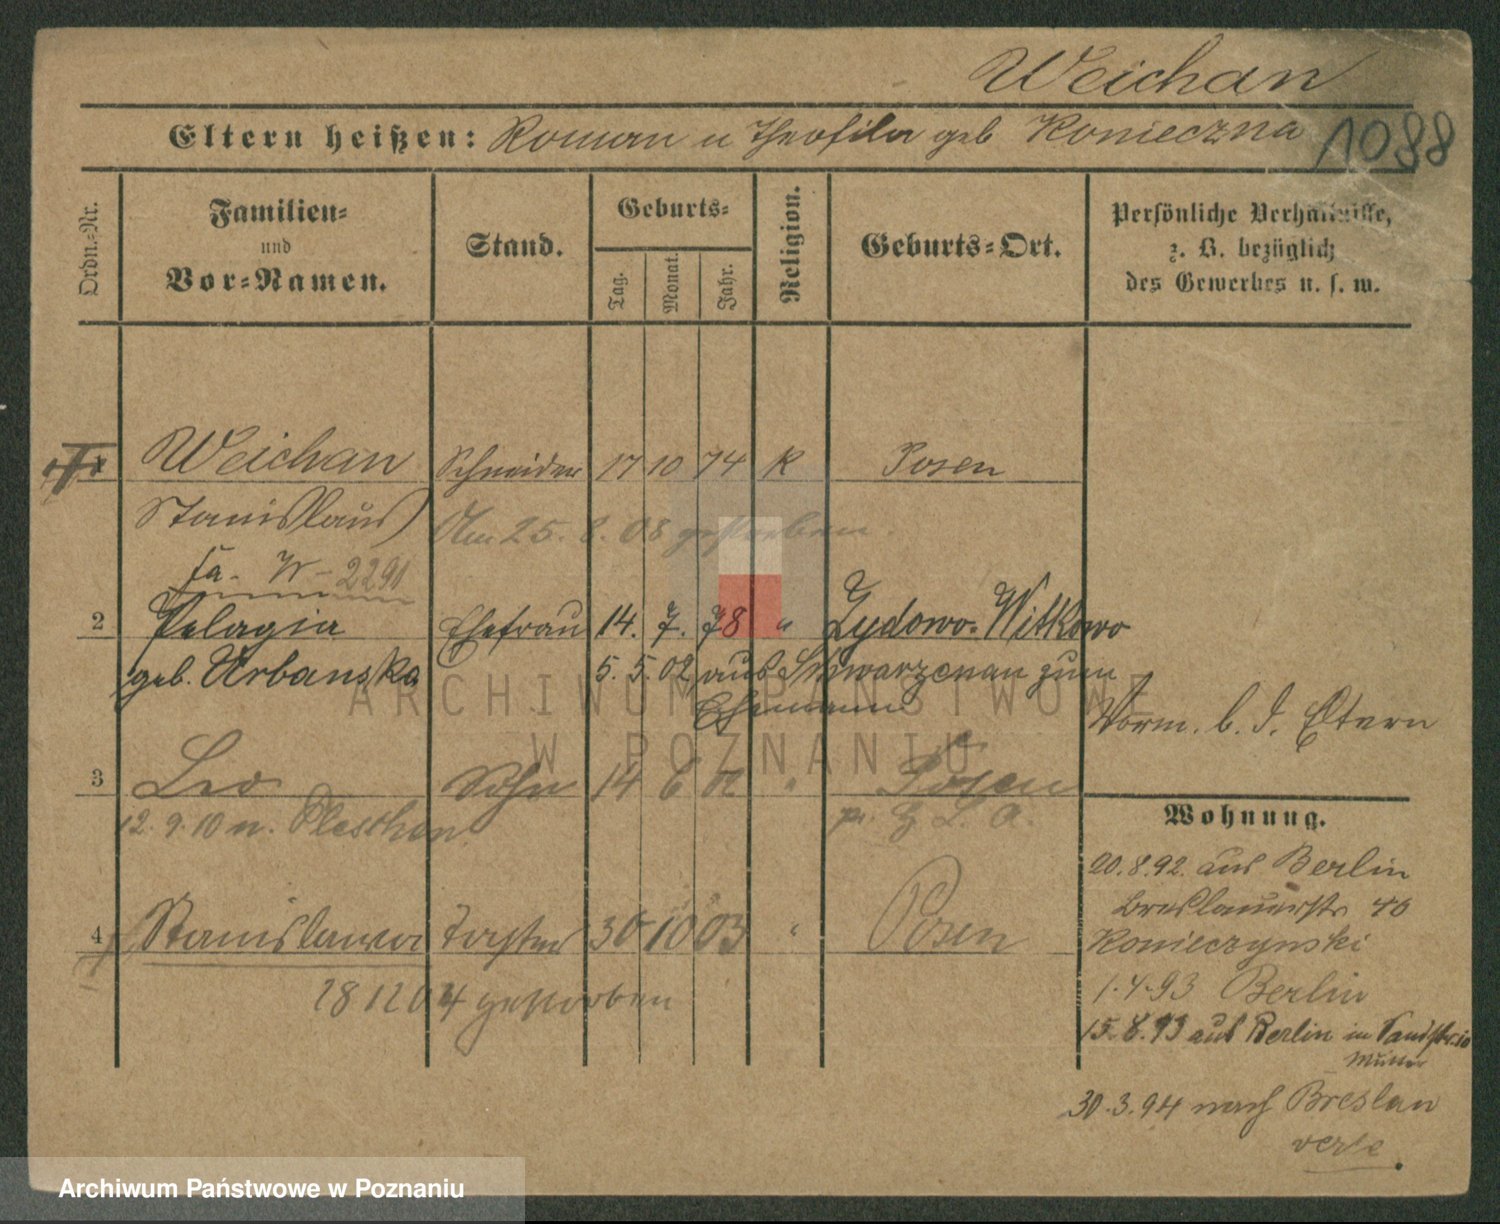 Weichan
Eltern heißen: Roman u Theofila geb Konieczna
1088
Ordn.-Nr.
Familien- und Vor-Namen.
Stand.
Geburts-
Tag. Monat. Jahr.
Religion.
Geburts-Ort.
Persönliche Verhältnisse,
z. B. bezüglich
des Gewerbes u. s. w.
Weichan Schneider 17 10 74 K Posen
Stanislaus Am 25. 8. 08 gestorben.
2291
2 Pelagia Ehefrau 14. 7. 78 " Zydowo. Witkowo
geb. Urbanska 5. 5. 02 aus Schwarzenau zum
Ehemann
Vorm. b. d. Eltern
3 Leo Sohn 14 6 " Posen
12. 9. 10 n. Pleschen
4 Stanislawa Tochter 30 10 03 " Posen
28 12 04 gestorben
Wohnung.
20. 8. 92. aus Berlin
Breslauerstr 40
Konieczynski
1. 4. 93 Berlin
15. 8. 93 aus Berlin in Sandstr. 10
Mutter
30. 3. 94 nach Breslau
ARCHIWUM PAŃSTWOWE
W POZNANIU
Archiwum Państwowe w Poznaniu